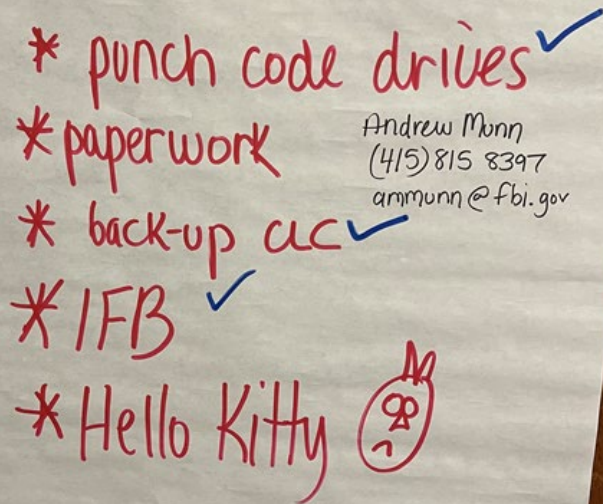 * punch code drives
* paperwork
Andrew Munn
(415) 815 8397
ammunn@fbi.gov
* back-up ac
* IFB
* Hello Kitty